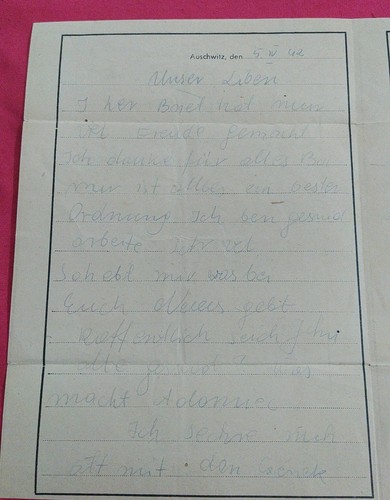 Auschwitz, den 5 IV 42
Unser Liben
I her Brief hat mir
vel Freude gemacht
Ich danke für alles B
mir ist alles ein bester
Ordnung Ich ben gesund
arbeite vel
mir was bei
Euch alles gebt
Hoffentlich seid ihr
alle gesund? Was
macht
Ich sechne mich
mit den